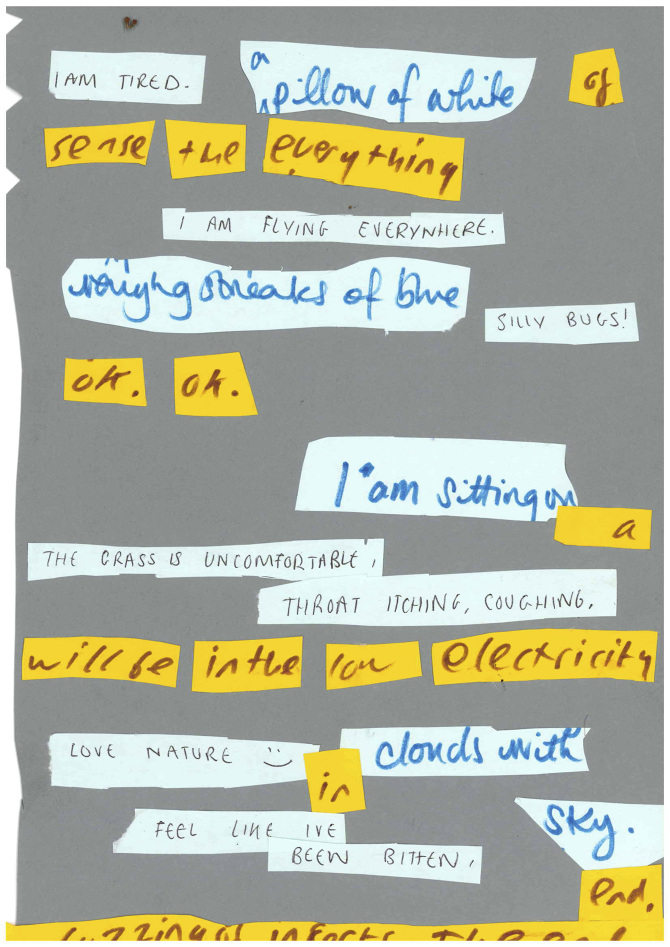 I AM TIRED. a pillow of white of
sense the everything
I AM FLYING EVERYWHERE.
streaks of blue
SILLY BUGS!
ok. ok.
I am sitting on
a
THE GRASS IS UNCOMFORTABLE,
THROAT ITCHING, COUGHING.
will be in the low electricity
LOVE NATURE :) in clouds with
sky.
FEEL LIKE IVE
BEEN BITTEN.
end.